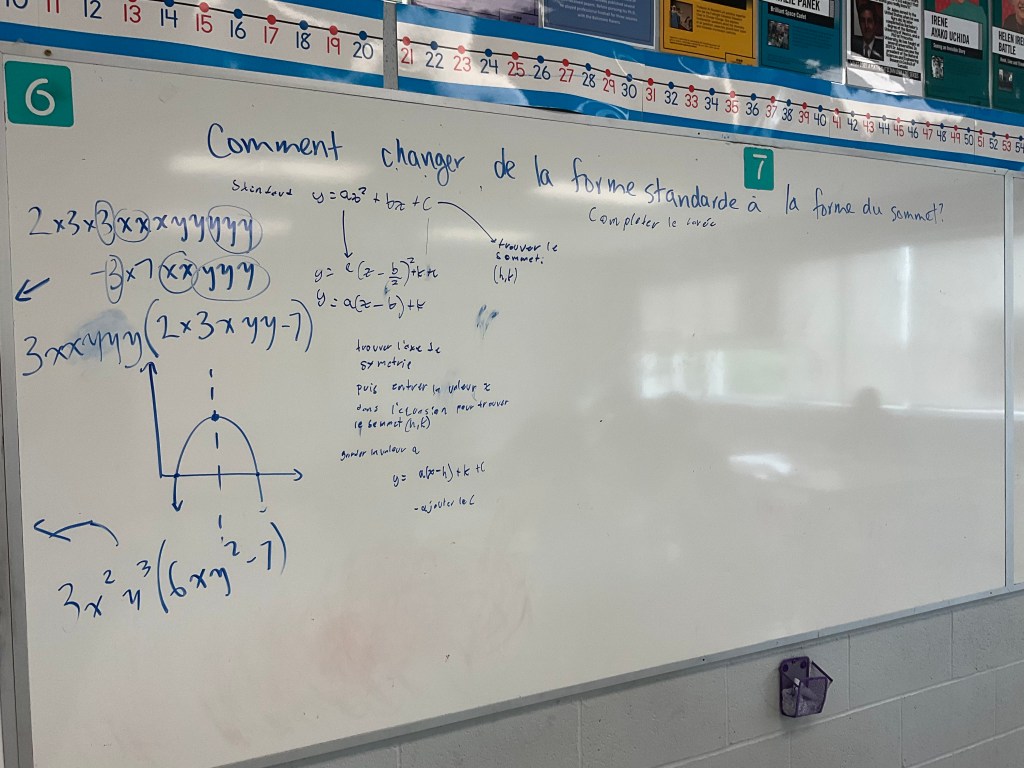 11 12 13 14 15 16 17 18 19 20 21 22 23 24 25 26 27 28 29 30 31 32 33 34 35 36 37 38 39 40 41 42 43 44 45 46 47 48 49 50 51 52 53 54
PANEK
IRENE
AYAKO UCHIDA
HELEN
BATTLE
6
7
Comment changer de la forme standarde à la forme du sommet?
Completer le
y = ax² + bx + C
trouver le
sommet.
(h,k)
y = a(x - b) + k
trouver l'axe de
symetrie
puis entrer la valeur x
dans pour trouver
le sommet (h,k)
la valeur a
y = a(x-h) + k + C
- ajouter le C
2×3×3xxxyyyyy
-3×7xxyyy
3xxyyy(2×3xyy-7)
3x²y³(6xy²-7)